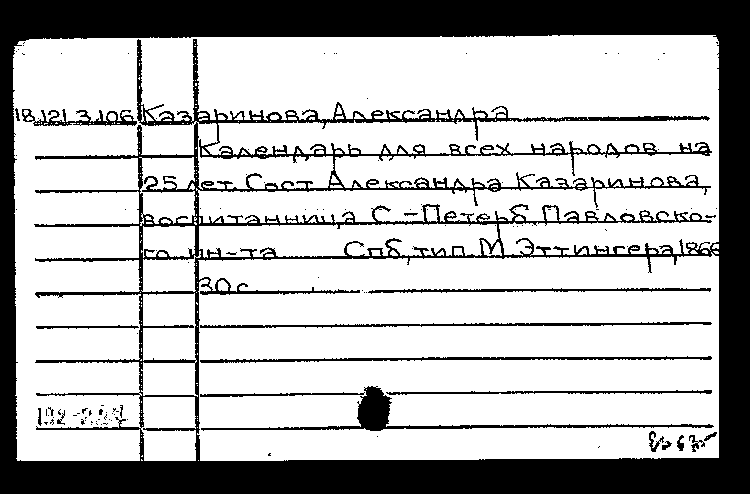 18.121.3.106 Казаринова, Александра
Календарь для всех народов на
25 лет. Сост. Александра Казаринова,
воспитанница С.-Петерб. Павловско-
го ин-та. Спб., тип. М. Эттингера, 1866
30 с.